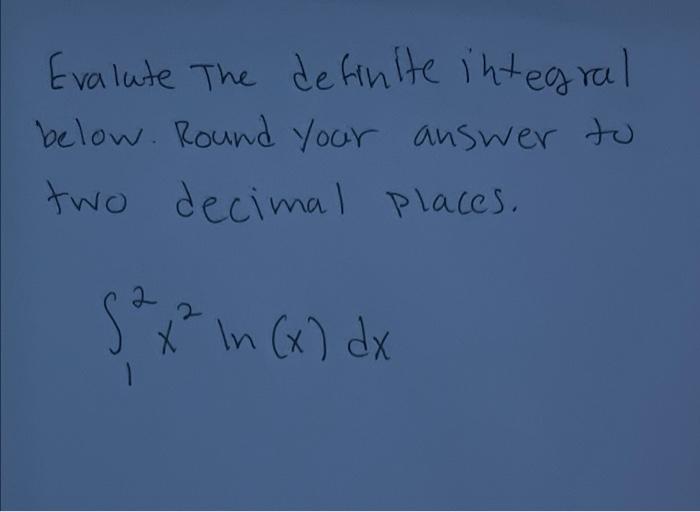 Evalute The definite integral
below. Round your answer to
two decimal places.
∫₁² x² ln (x) dx